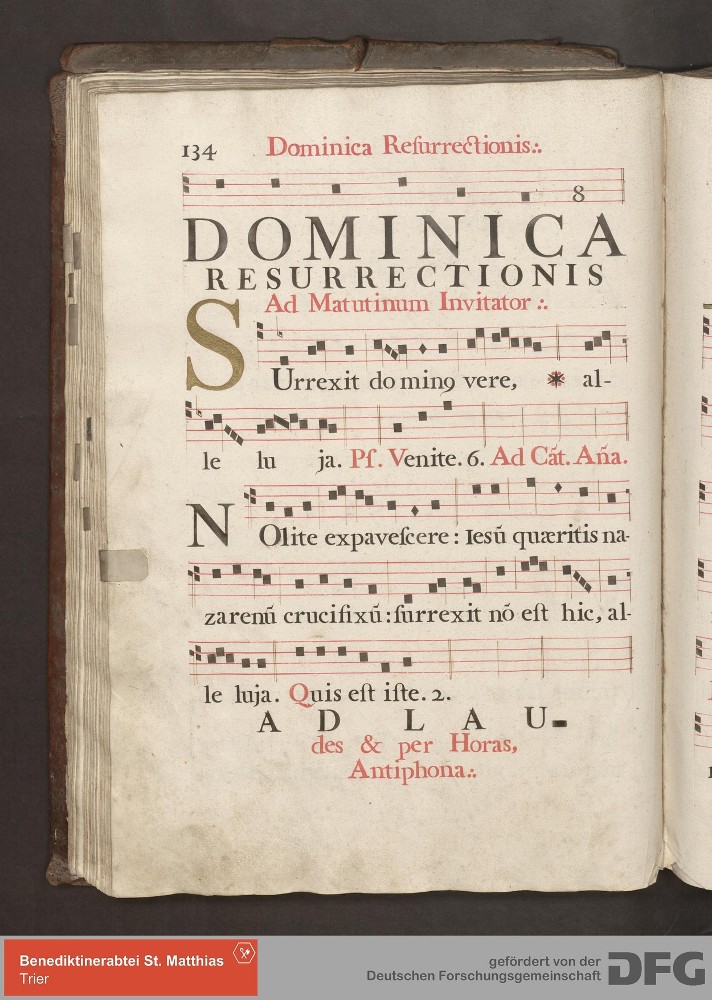 134 Dominica Reſurrectionis.:.
8
DOMINICA
RESURRECTIONIS
Ad Matutinum Invitator.:.
SUrrexit do minꝯ vere, * al-
le lu ja. Pſ. Venite. 6. Ad Cãt. Aña.
NOlite expaveſcere : Iesũ quæritis na-
zarenũ crucifixũ : ſurrexit nõ eſt hic, al-
le luja. Quis eſt iſte. 2.
AD LAU-
des & per Horas,
Antiphona.:.
Benediktinerabtei St. Matthias
Trier
gefördert von der
Deutschen Forschungsgemeinschaft DFG